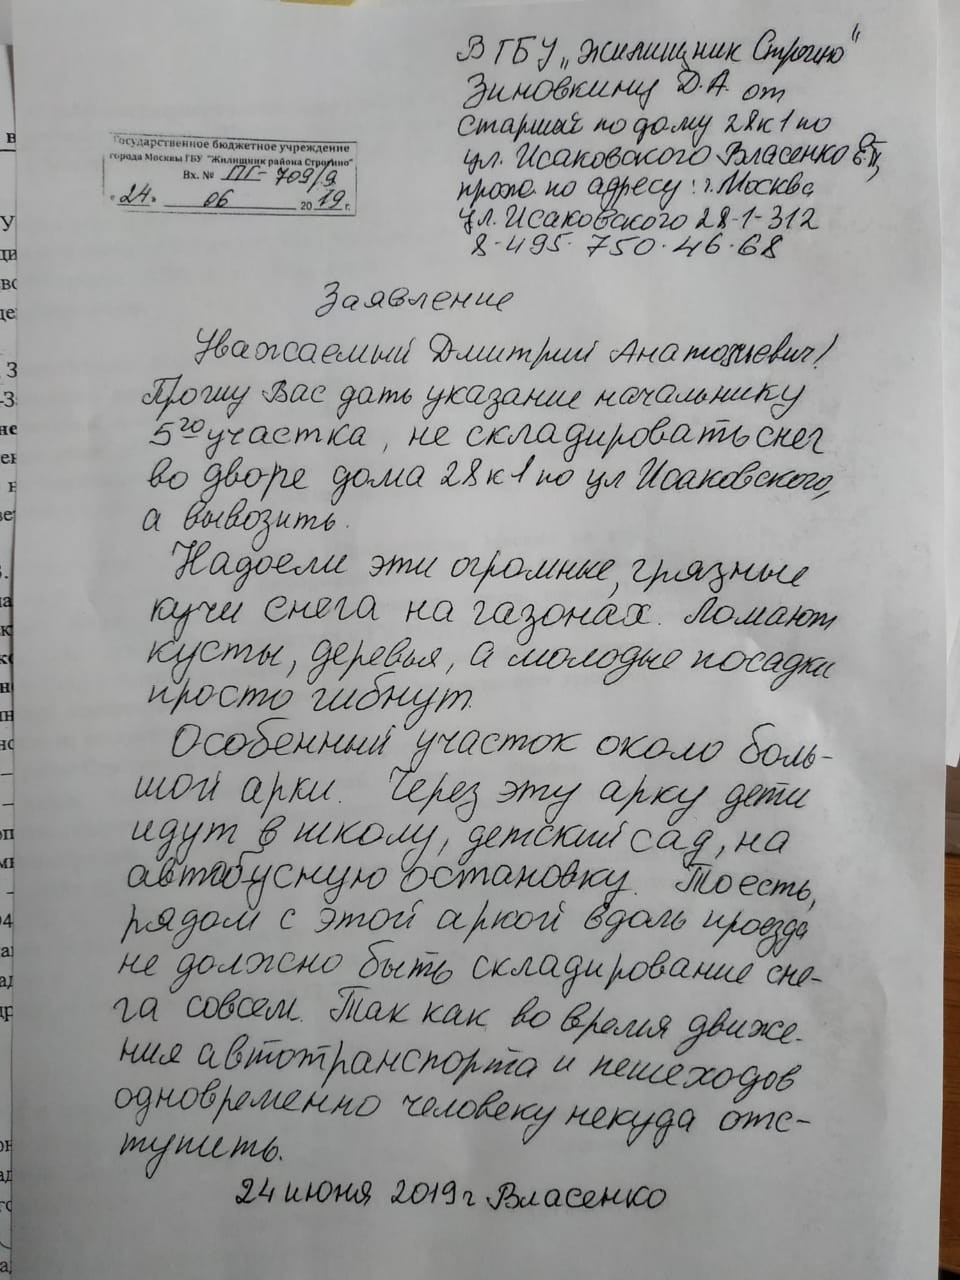 В ГБУ „Жилищник Строгино"
Зиновкину Д.А. от
старшей по дому 28к1 по
ул. Исаковского Власенко
прож. по адресу: г. Москва
ул. Исаковского 28-1-312
8-495-750-46-68
Государственное бюджетное учреждение
города Москвы ГБУ "Жилищник района Строгино"
Вх. № ПГ-709/9
"24" 06 2019 г.
Заявление
Уважаемый Дмитрий Анатольевич!
Прошу Вас дать указание начальнику
5го участка, не складировать снег
во дворе дома 28к1 по ул Исаковского,
а вывозить.
Надоели эти огромные, грязные
кучи снега на газонах. Ломают
кусты, деревья, а молодые посадки
просто гибнут.
Особенный участок около боль-
шой арки. Через эту арку дети
идут в школу, детский сад, на
автобусную остановку. Тоесть,
рядом с этой аркой вдоль проезда
не должно быть складирование сне-
га совсем. Так как во время движе-
ния автотранспорта и пешеходов
одновременно человеку некуда отс-
тупить.
24 июня 2019г Власенко